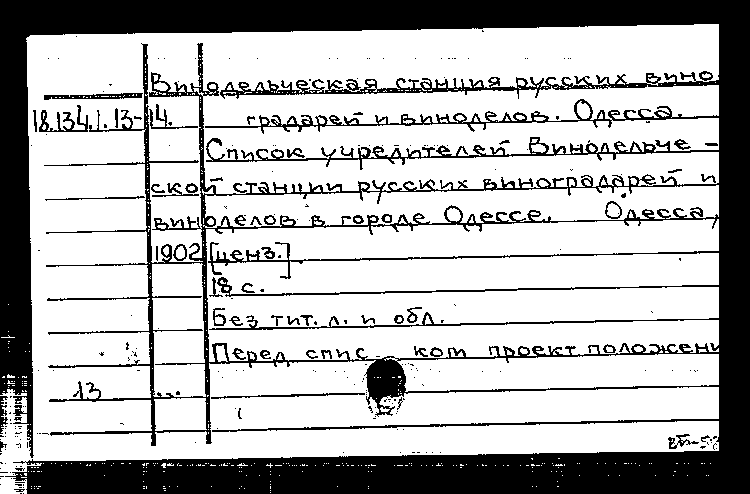 Винодельческая станция русских вино-
18.134.1.13-14. градарей и виноделов. Одесса.
Список учредителей Винодельче-
ской станции русских виноградарей и
виноделов в городе Одессе. Одесса,
1902 [ценз.].
18 с.
Без тит. л. и обл.
Перед спис ком проект положени
13 ...